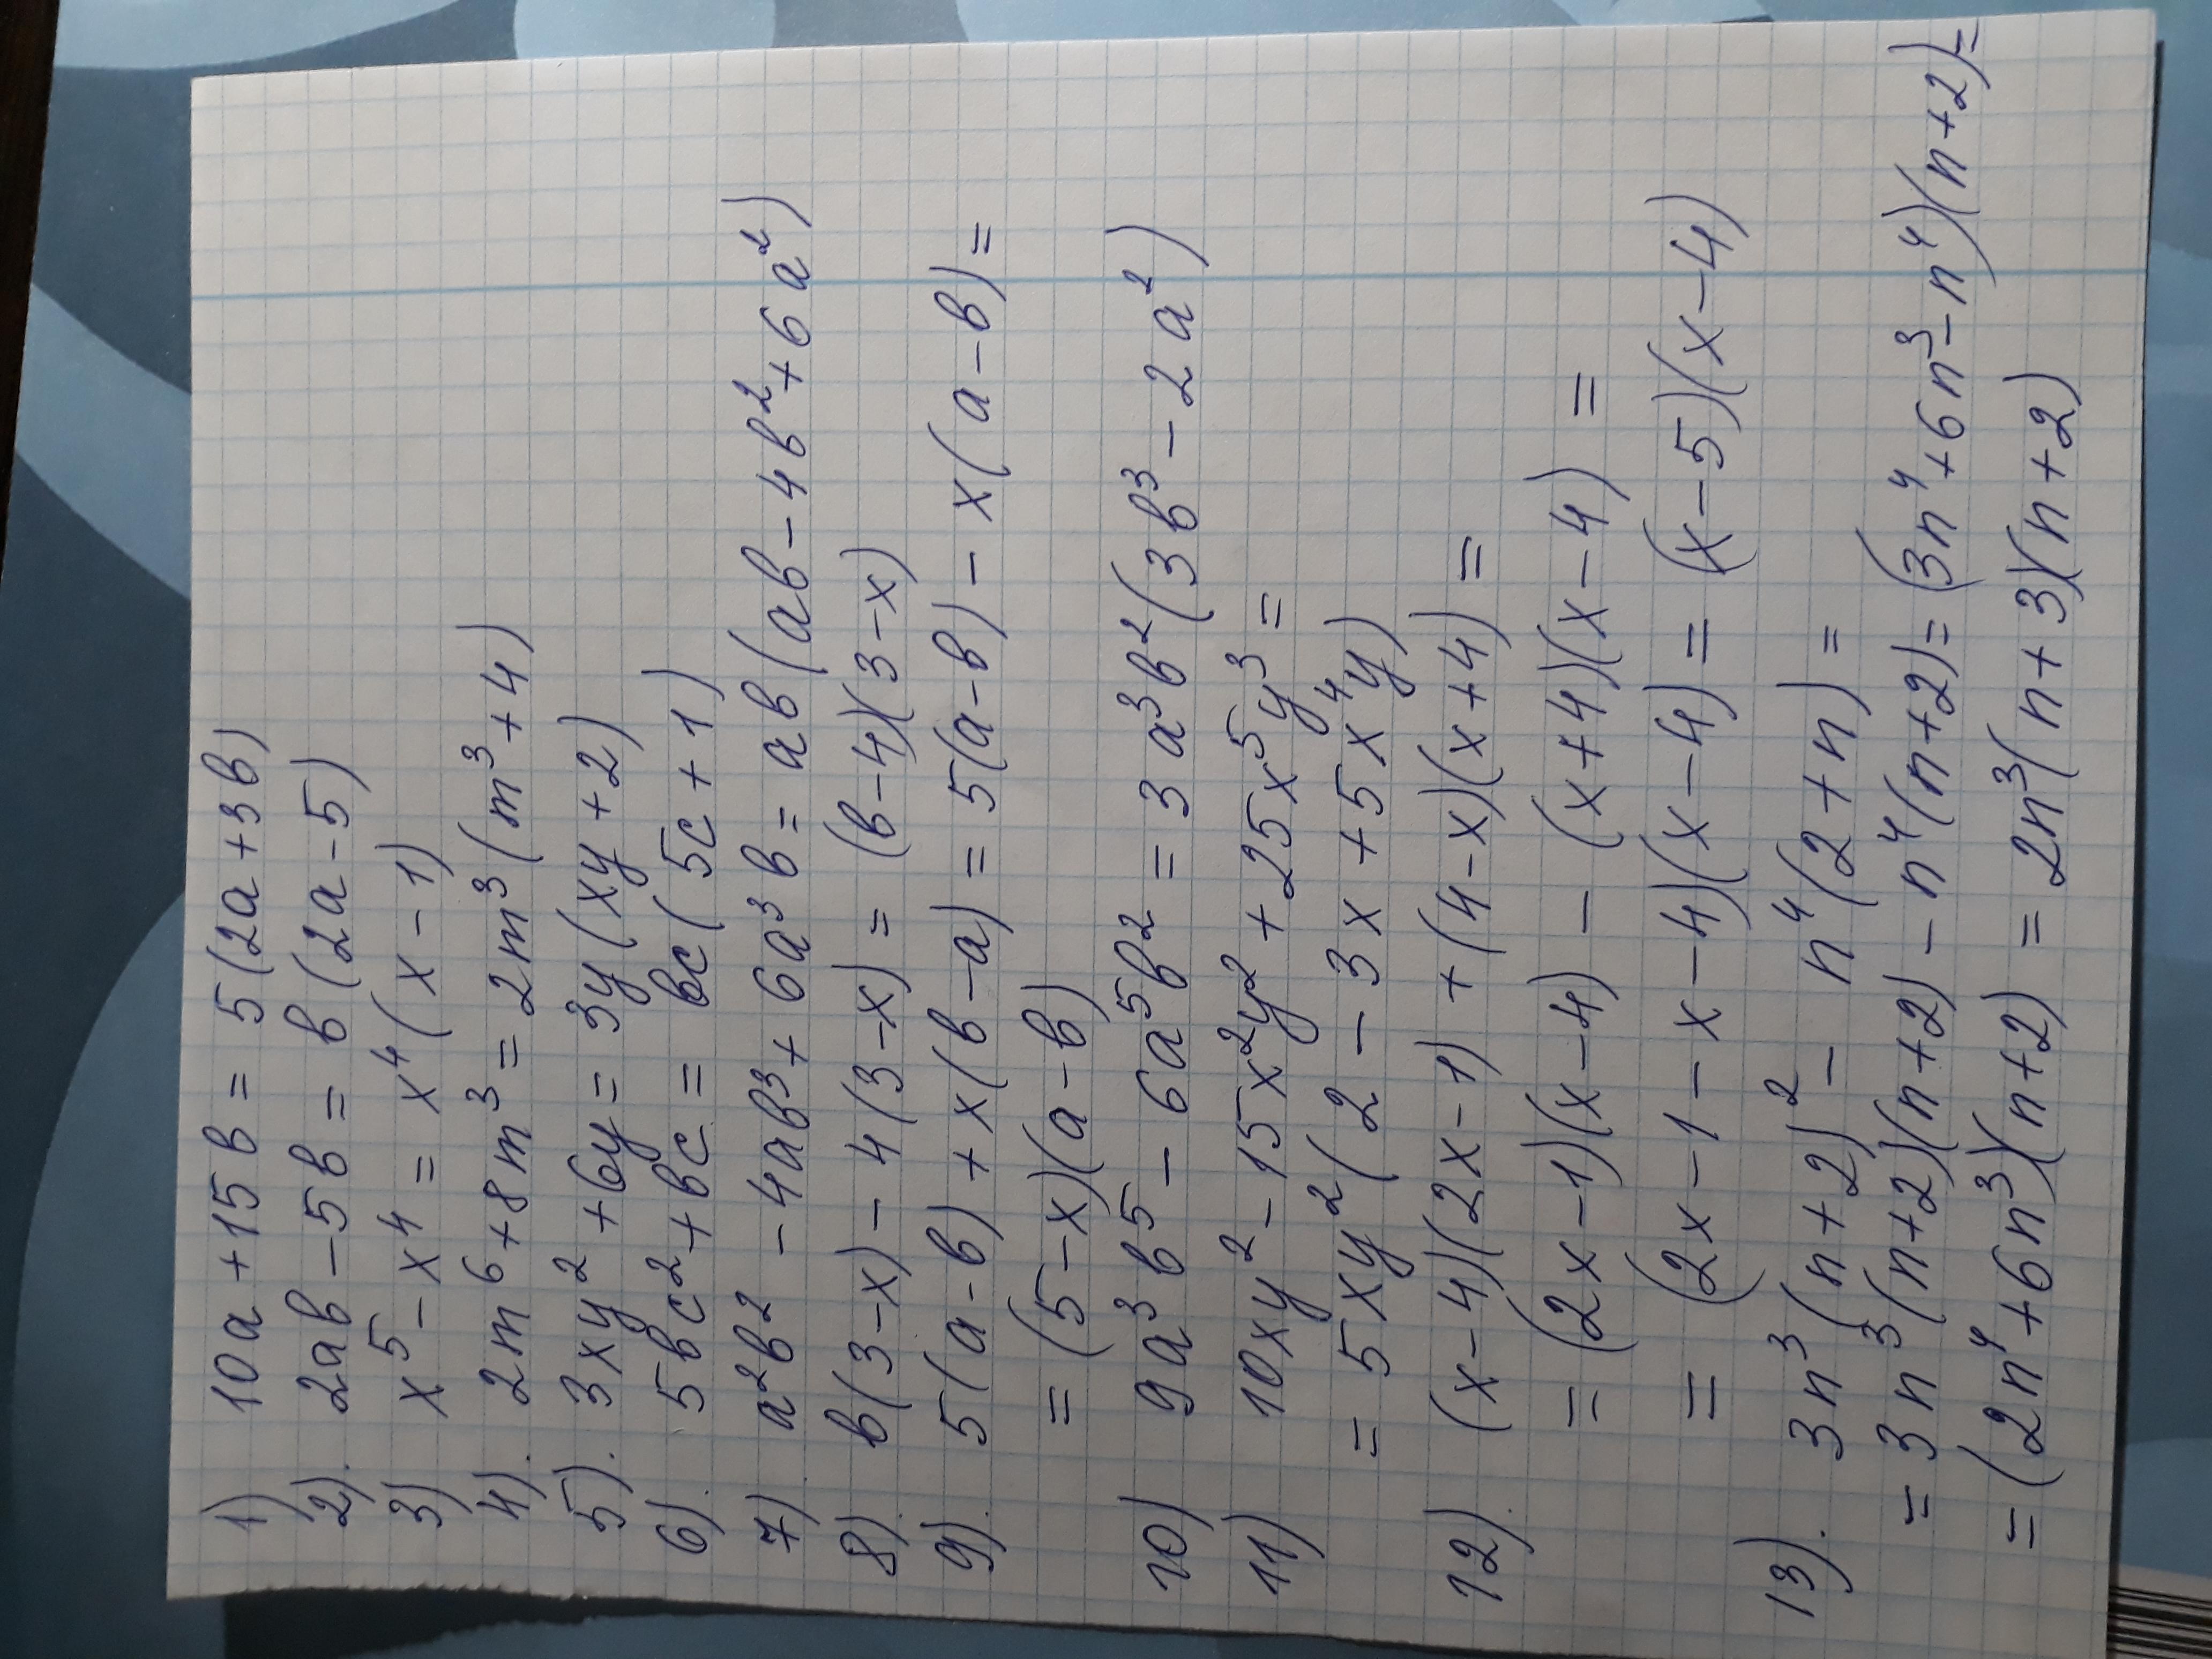 1) 10a + 15в = 5(2a + 3в)
2). 2aв - 5в = в(2a - 5)
3) x⁵ - x⁴ = x⁴(x - 1)
4). 2m⁶ + 8m³ = 2m³(m³ + 4)
5). 3xy² + 6y = 3y(xy + 2)
6). 5вc² + вc = вc(5c + 1)
7). a²в² - 4aв³ + 6a³в = aв(aв - 4в² + 6a²)
8). в(3 - x) - 4(3 - x) = (в - 4)(3 - x)
9). 5(a - в) + x(в - a) = 5(a - в) - x(a - в) =
= (5 - x)(a - в)
10) 9a³в⁵ - 6a⁵в² = 3a³в²(3в³ - 2a²)
11) 10xy² - 15x²y² + 25x⁵y³ =
= 5xy²(2 - 3x + 5x⁴y)
12). (x - 4)(2x - 1) + (4 - x)(x + 4) =
= (2x - 1)(x - 4) - (x + 4)(x - 4) =
= (2x - 1 - x - 4)(x - 4) = (x - 5)(x - 4)
13). 3n³(n + 2)² - n⁴(2 + n) =
= 3n³(n + 2)(n + 2) - n⁴(n + 2) = (3n⁴ + 6n³ - n⁴)(n + 2) =
= (2n⁴ + 6n³)(n + 2) = 2n³(n + 3)(n + 2)